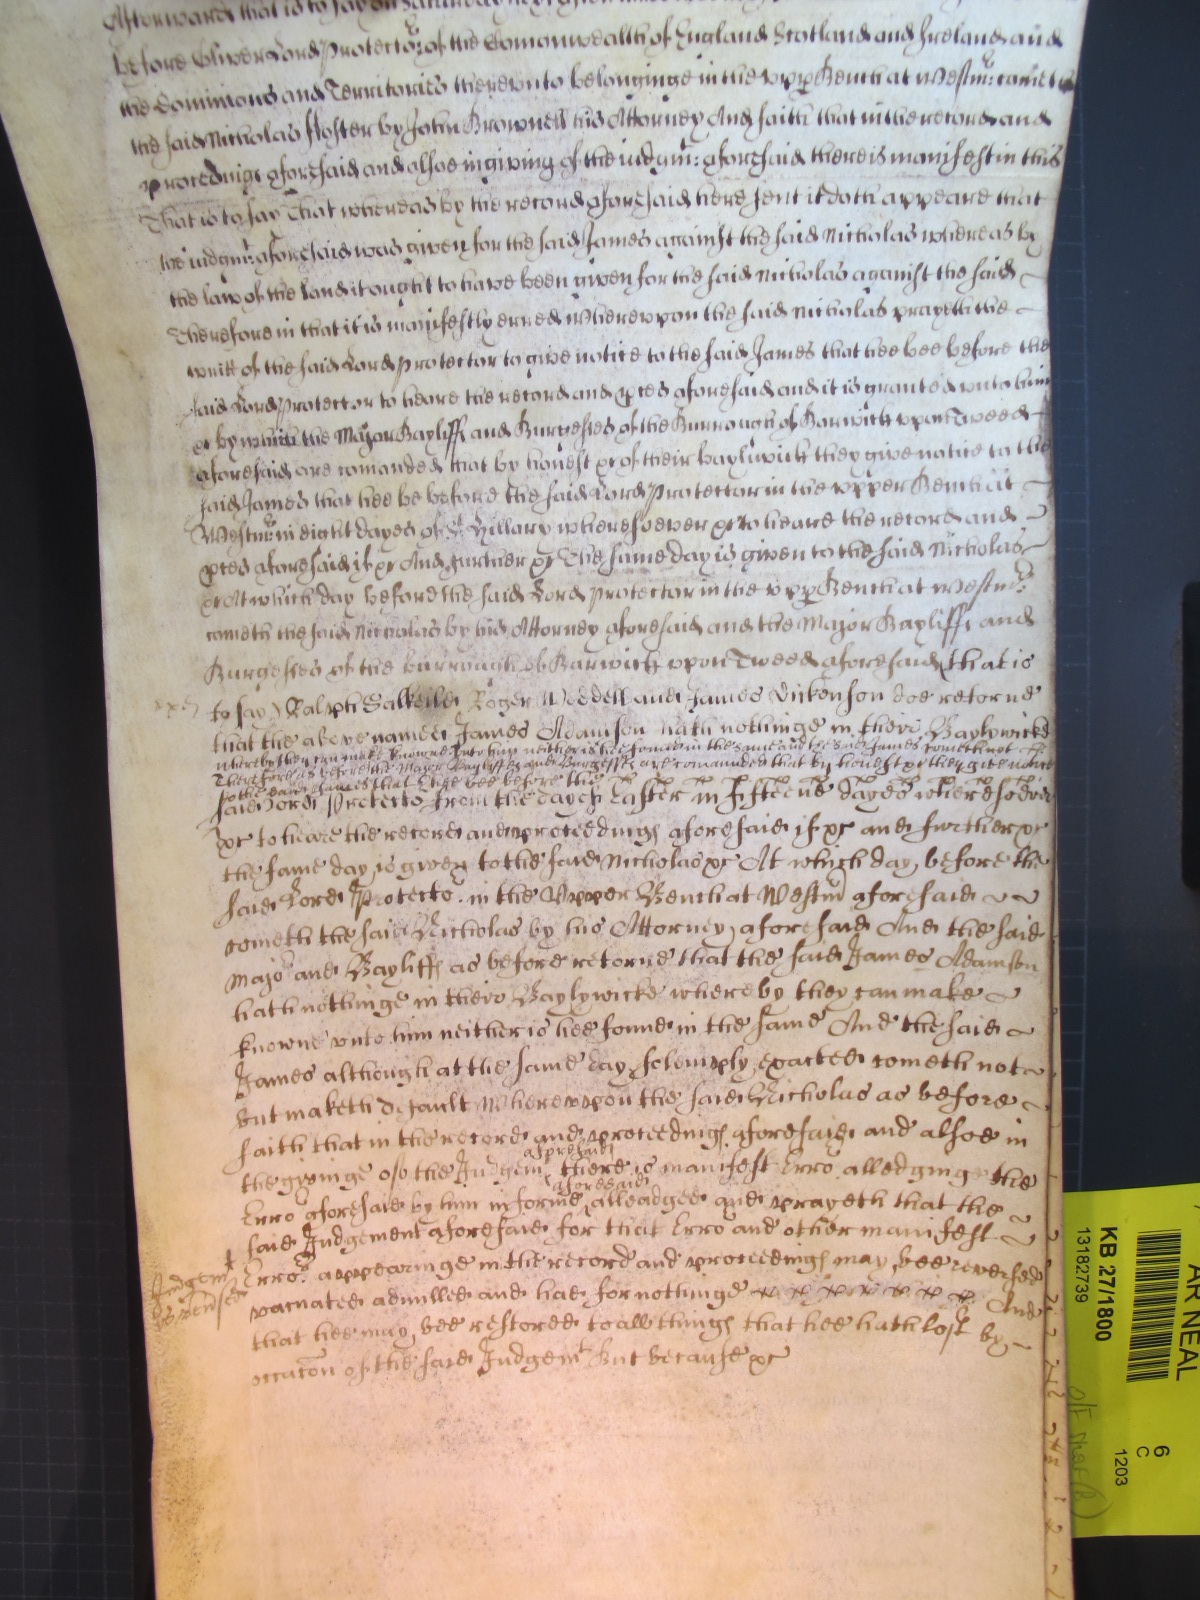 Afterwards that is to say on Saturday next
before Oliver Lord Protector of the Comonwealth of England Scotland and Ireland and
the Dominions and Territories therevnto belonginge in the vpp Bench at Westmr: cameth
the said Nicholas Foster by John Brownell his Attorney And saith that in the record and
proceedings aforesaid and alsoe in giving of the iudgmt: aforesaid there is manifest in this
That is to say That whereas by the record aforesaid here sent it doth appeare that
the iudgmt: aforesaid was given for the said James against the said Nicholas whereas by
the law of the land it ought to have been given for the said Nicholas against the said
Therefore in that it is manifestly erred Wherevpon the said Nicholas prayeth the
writt of the said Lord Protector to give notice to the said James that hee bee before the
said Lord Protector to heare the record and pces aforesaid and it is granted vnto him
&c by which the Major Bayliffs and Burgesses of the Burrough of Barwick vpon Tweed
aforesaid are comanded that by honest &c of their baylywick they give notice to the
said James that hee be before the said Lord Protector in the vpper Bench at
Westmr: in eight dayes of St. Hillary wheresoever &c to heare the record and
pces aforesaid if &c And further &c The same day is given to the said Nicholas
&c At which day before the said Lord Protector in the vpp Bench at Westmr:
cometh the said Nicholas by his Attorney aforesaid and the Major Bayliffs and
Burgesses of the burrough of Barwick vpon Tweed aforesaid (that is
to say) Ralph Salkeild Roger Weddell and James Dickenson doe retorne
that the above named James Adamson hath nothinge in their Baylywicke
whereby they can make knowne vnto him neither is hee found in the same and the said James cometh not
Therefore as before the Major Bayliffs and Burgesses are comannded that by honest &c they give notice
to the said James that hee bee before the
said Lord Protector from the day of Easter in fifteene dayes wheresoever
&c to heare the record and proceedings aforesaid if &c and further &c
the same day is given to the said Nicholas &c At which day before the
said Lord Protector in the Vpper Bench at Westmr aforesaid
cometh the said Nicholas by his Attorney aforesaid And the said
Major and Bayliffs as before retorne that the said James Adamson
hath nothinge in their Baylywicke whereby they can make
knowne vnto him neither is hee found in the same And the said
James although at the same day solemply exacted cometh not
but maketh default Wherevpon the said Nicholas as before
saith that in the record and proceedings aforesaid and alsoe in
the givinge of the Judgemt aforesaid there is manifest Error alledginge the
Error aforesaid by him in forme aforesaid alleadged and prayeth that the
said Judgement aforesaid for that Error and other manifest
Errors appearinge in the record and proceedings may bee reversed
Judgemt
reversed
vacuated adnulled and had for nothinge And
that hee may bee restored to all things that hee hath lost by
occacon of the said Judgemt But because &c
AR NEAL
KB 27/1800
13182739
6
C
1203